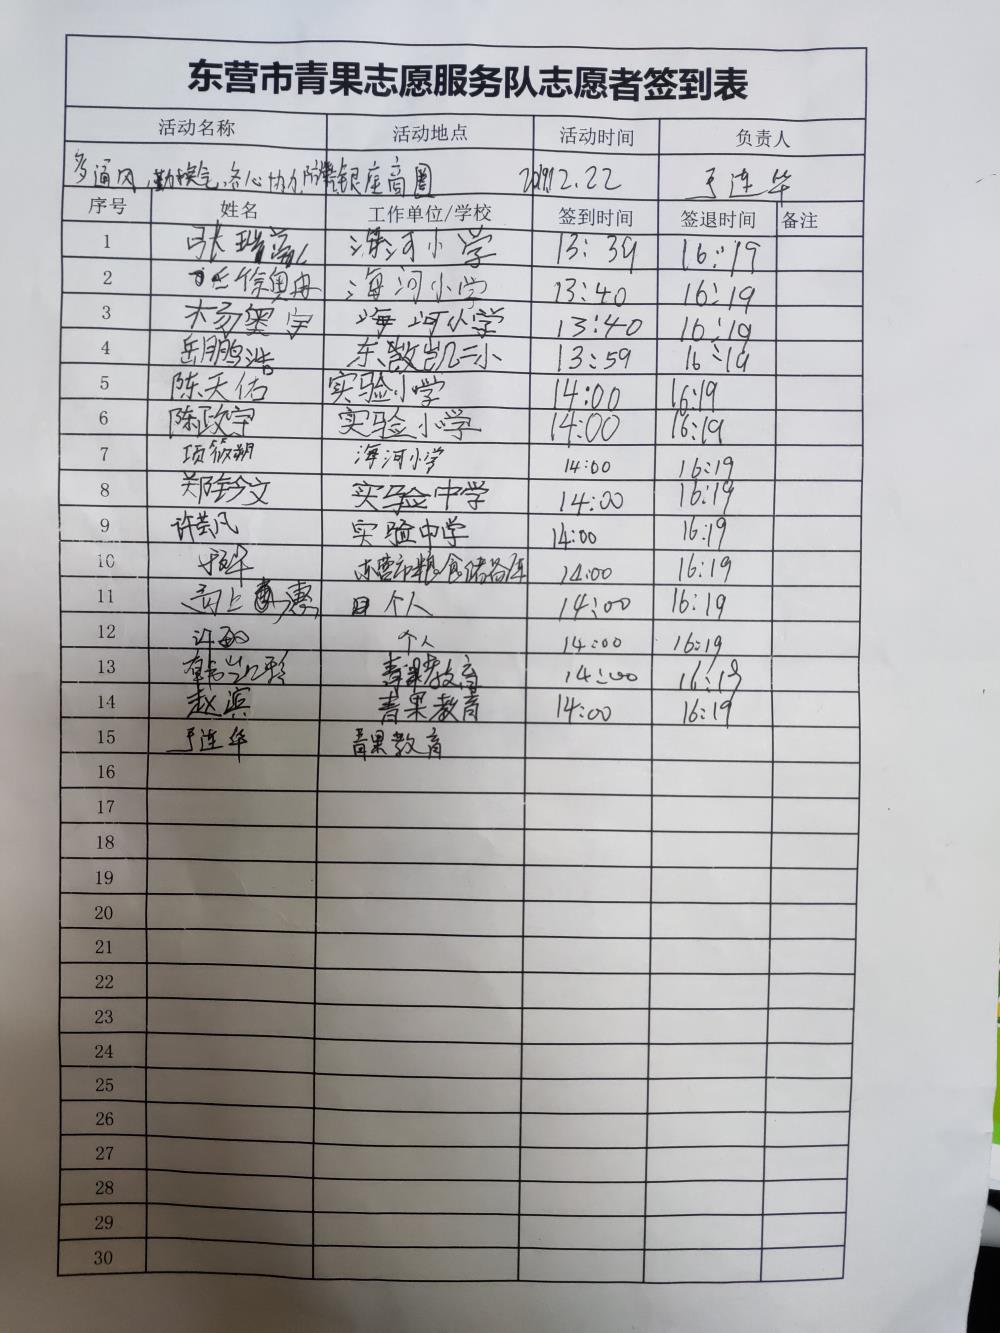 东营市青果志愿服务队志愿者签到表
活动名称 活动地点 活动时间 负责人
多通风,勤换气,齐心协力防 银座商圈 2019.12.22 连华
序号 姓名 工作单位/学校 签到时间 签退时间 备注
1 张瑞 海河小学 13:39 16:19
2 海河小学 13:40 16:19
3 宇 海河小学 13:40 16:19
4 岳鹏浩 东凯二小 13:59 16:19
5 陈天佑 实验小学 14:00 16:19
6 陈政宇 实验小学 14:00 16:19
7 项筱朔 海河小学 14:00 16:19
8 郑钤文 实验中学 14:00 16:19
9 许芸风 实验中学 14:00 16:19
10 东营市粮食储备库 14:00 16:19
11 个人 14:00 16:19
12 许 个人 14:00 16:19
13 韩 青果教育 14:00 16:19
14 赵滨 青果教育 14:00 16:19
15 连华 青果教育
16
17
18
19
20
21
22
23
24
25
26
27
28
29
30